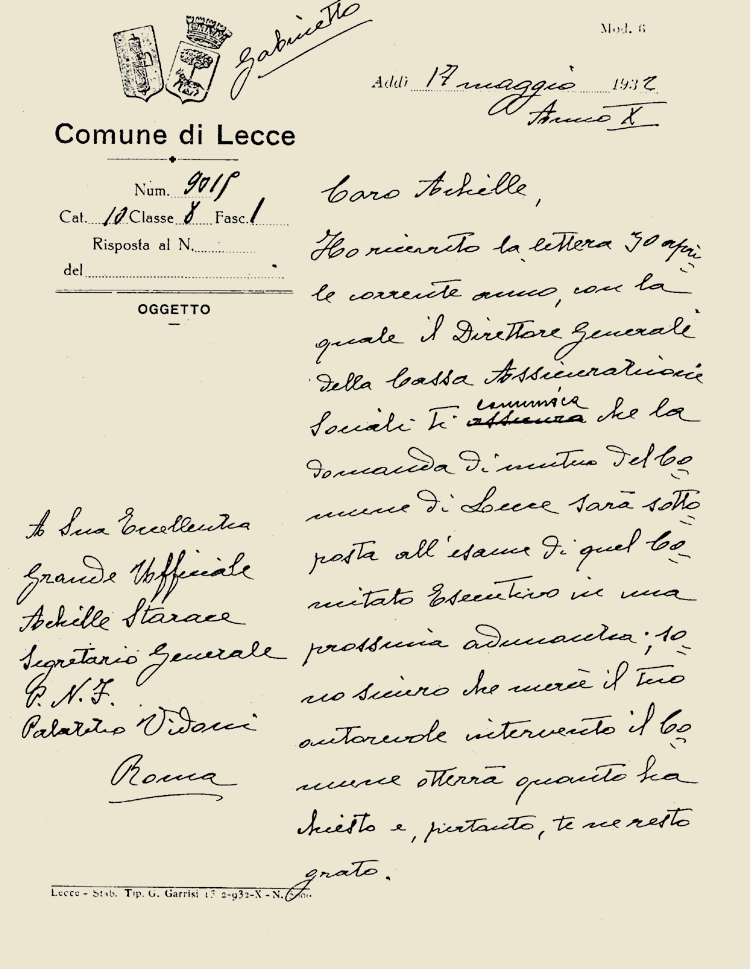 Gabinetto
Mod. 6
Addì 17 maggio 1932
Anno X
Comune di Lecce
Núm. 9015
Cat. 10 Classe 8 Fasc. 1
Risposta al N.
del
OGGETTO
Caro Achille,
Ho ricevuto la lettera 30 apri
le corrente anno, con la
quale il Direttore Generale
della Cassa Assicurazione
Sociali ti assicura comunica che la
domanda di mutuo del Co
mune di Lecce sarà sotto
posta all'esame di quel Co
mitato Esecutivo in una
prossima adunanza; so
no sicuro che mercè il tuo
autorevole intervento il Co
mune otterrà quanto ha
chiesto e, pertanto, te ne resto
grato.
A Sua Eccellenza
Grande Ufficiale
Achille Starace
Segretario Generale
P. N. F.
Palazzo Vidoni
Roma
Lecce - Stab. Tip. G. Garrisi 13-2-932-X - N.